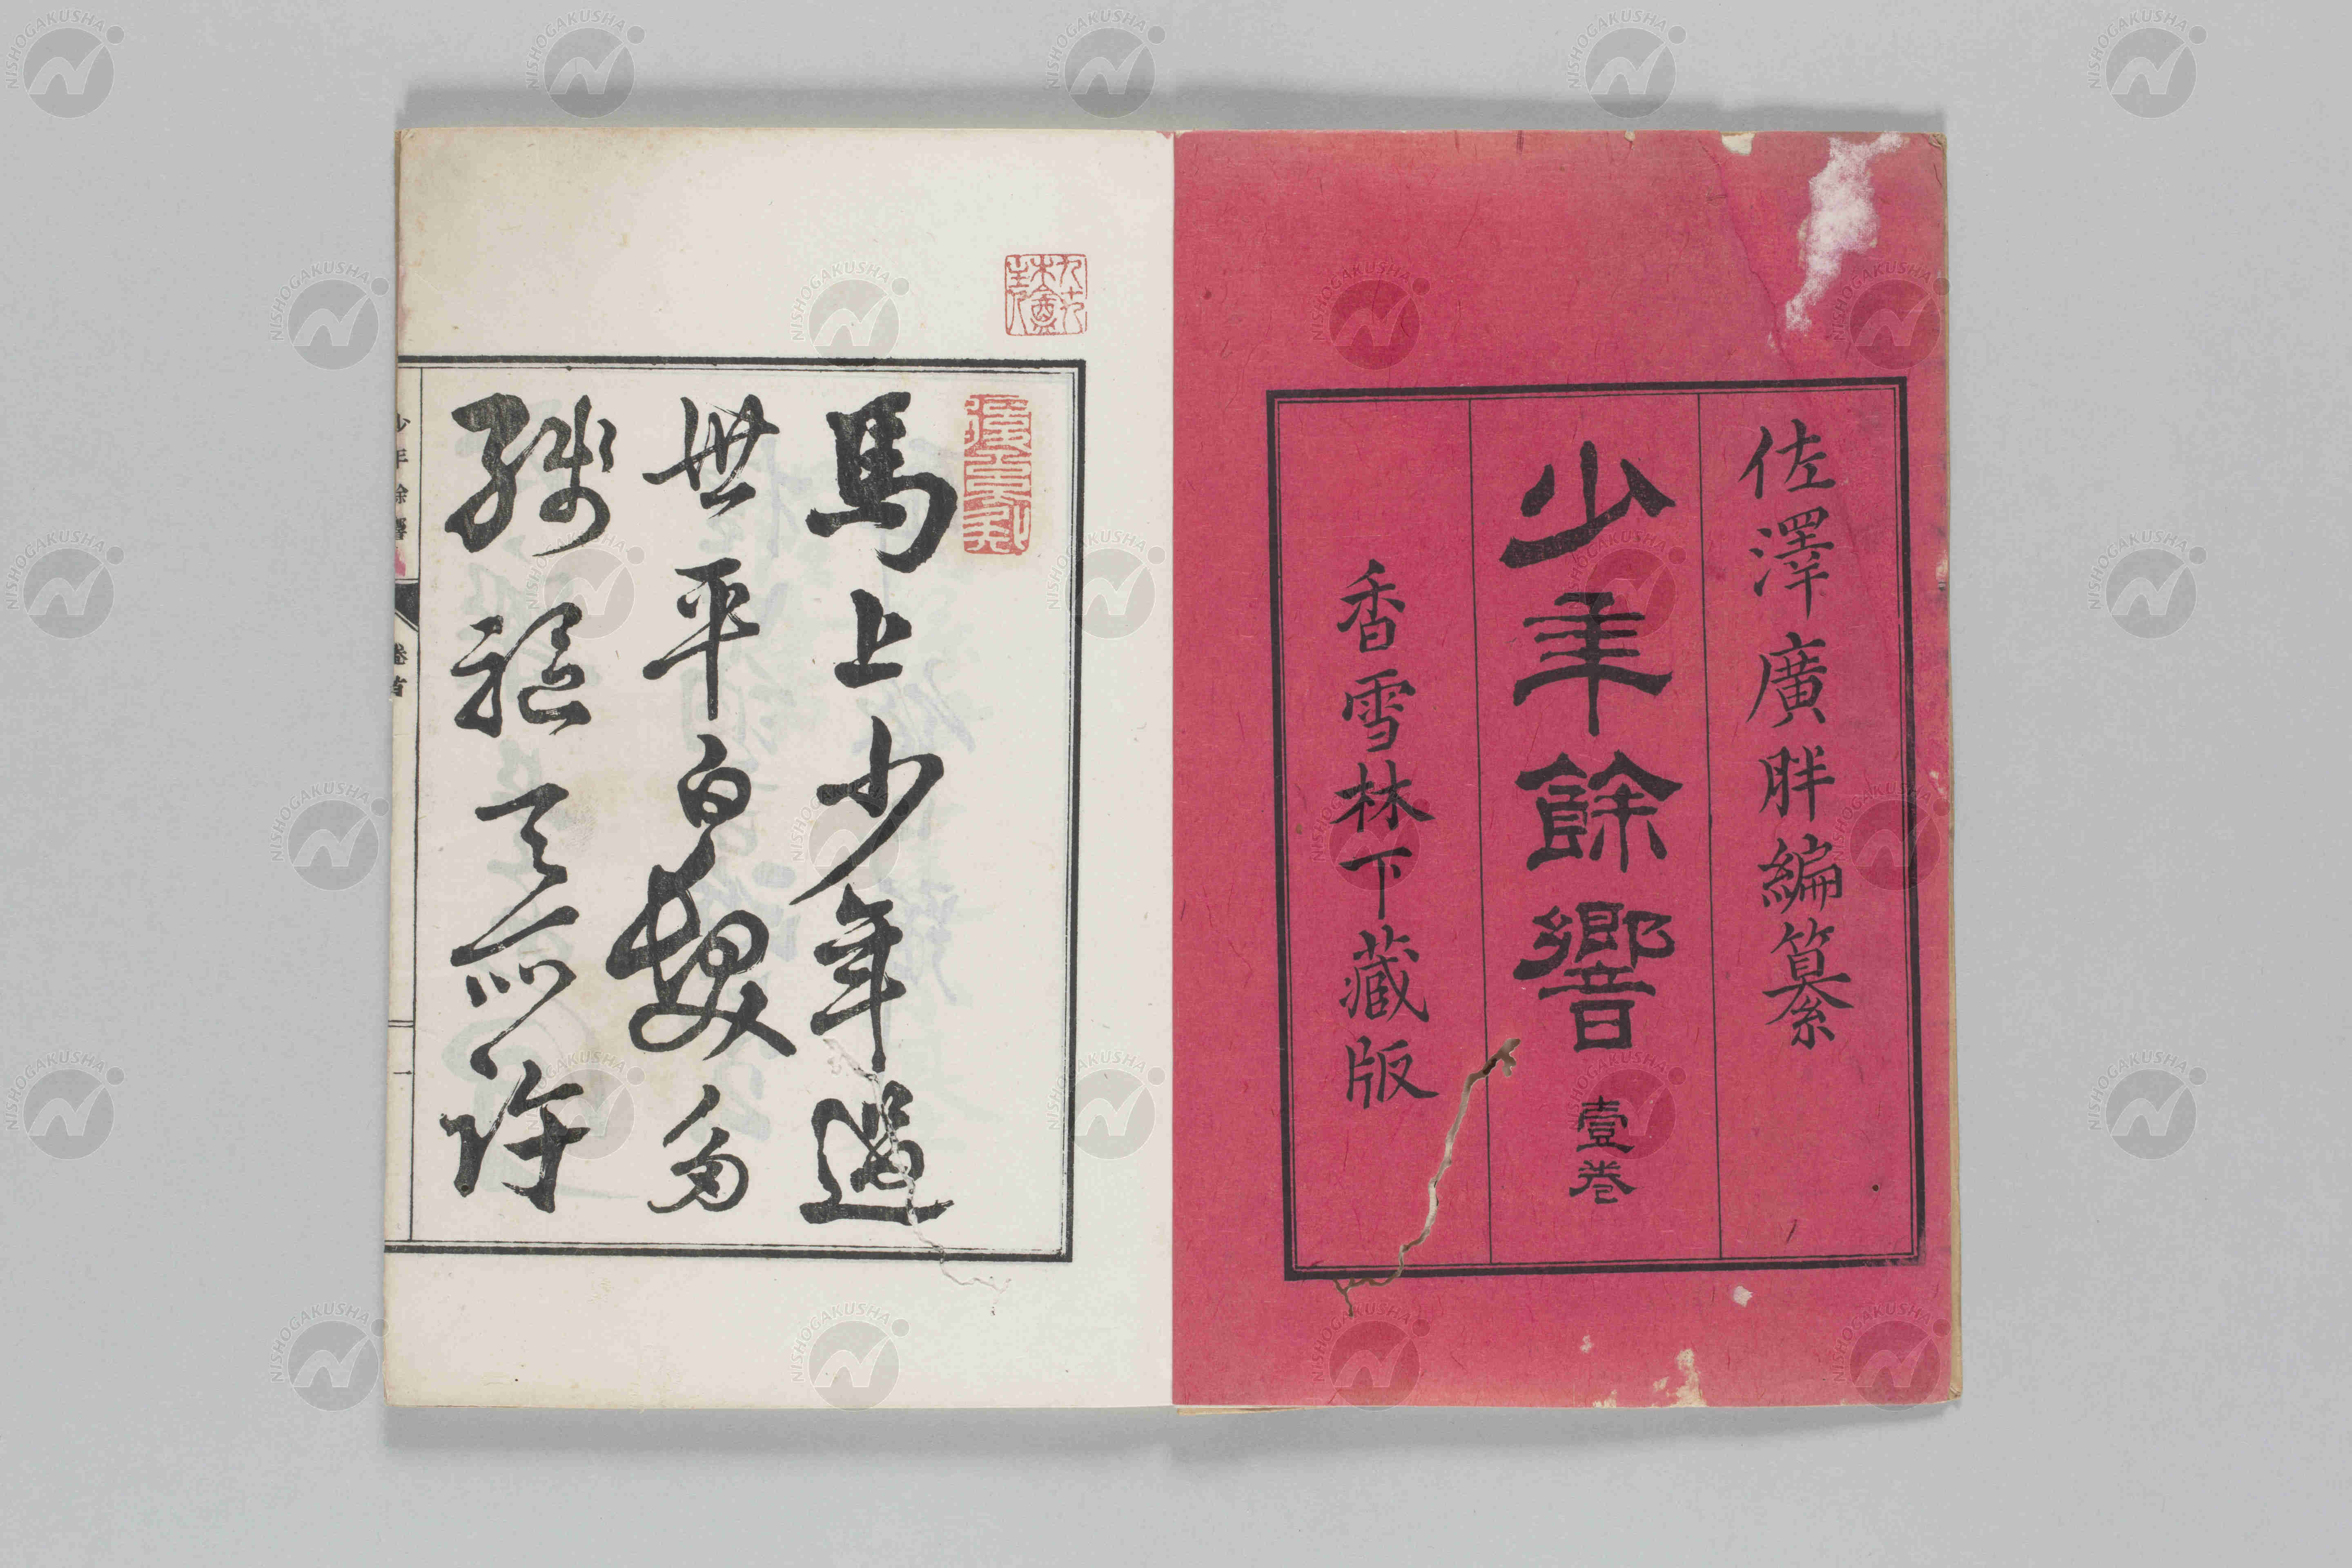 佐澤廣胖編纂
少年餘響 壹卷
香雪林下藏版
馬上少年過
世平白髮多
殘軀天所許
少年餘響
卷首
一
NISHOGAKUSHA